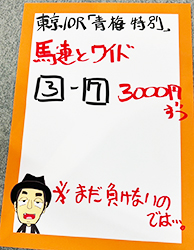 東京10R「青梅特別」
馬連とワイド
3-7 3000円
ずつ
※まだ負けないの
では…。